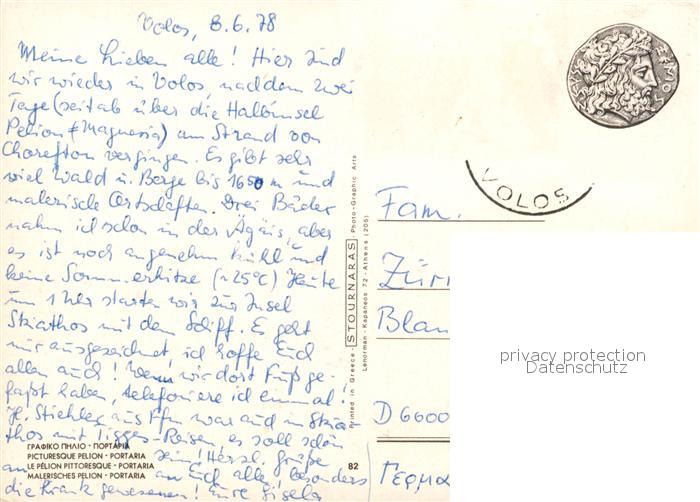 Volos, 8.6.78
Meine Lieben alle! Hier sind
wir wieder in Volos, nachdem zwei
Tage (seitab über die Halbinsel
Pelion ≠ Magnesia) am Strand von
Chorefton vergingen. Es gibt sehr
viel Wald u. Berge bis 1650 m und
malerische Ortschaften. Drei Bäder
nahm ich schon in der Ägäis, aber
es ist noch angenehm kühl und
keine Sommerhitze (~25°C) Heute
um 1 Uhr starten wir zur Insel
Skiathos mit dem Schiff. Es geht
mir ausgezeichnet, ich hoffe Euch
allen auch! Wenn wir dort Fuß ge-
faßt haben, telefoniere ich einmal!
H. Stiehler aus Ffm war auch in Skia-
thos mit Tigges-Reisen, es soll schön
sein! Herzl. Grüße
an Euch alle, besonders
die Krank gewesenen! Eure Gisela
ΓΡΑΦΙΚΟ ΠΗΛΙΟ - ΠΟΡΤΑΡΙΑ
PICTURESQUE PELION - PORTARIA
LE PÉLION PITTORESQUE - PORTARIA
MALERISCHES PELION - PORTARIA
82
Printed in Greece - STOURNARAS - Photo-Graphic Arts
Lenorman - Kapaneos 72 - Athens (205)
VOLOS
Fam.
Züri
Blan
D6000
Γερμα
privacy protection
Datenschutz